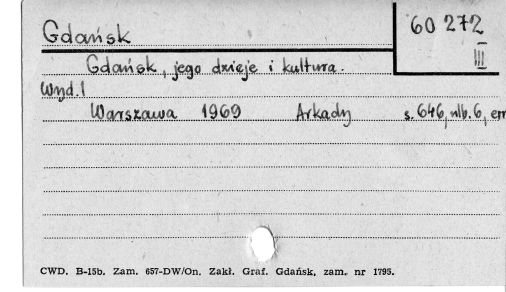 Gdańsk
60 272
III
Gdańsk, jego dzieje i kultura.
Wyd. 1
Warszawa 1969 Arkady s. 646, nlb. 6, err
CWD. B-15b. Zam. 657-DW/On. Zakł. Graf. Gdańsk, zam. nr 1795.